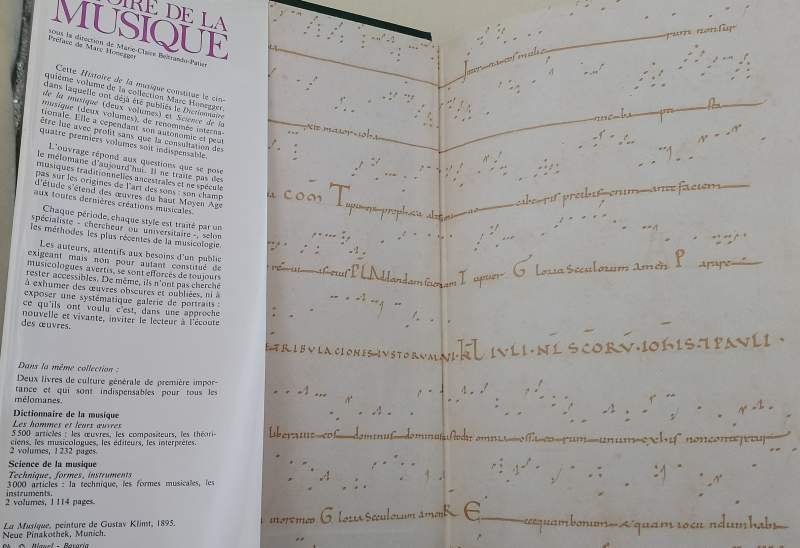 OIRE DE LA
MUSIQUE
sous la direction de Marie-Claire Beltrando-Patier
Préface de Marc Honegger
Cette Histoire de la musique constitue le cin-
quième volume de la collection Marc Honegger,
dans laquelle ont déjà été publiés le Dictionnaire
de la musique (deux volumes) et Science de la
musique (deux volumes), de renommée interna-
tionale. Elle a cependant son autonomie et peut
être lue avec profit sans que la consultation des
quatre premiers volumes soit indispensable.
L'ouvrage répond aux questions que se pose
le mélomane d'aujourd'hui. Il ne traite pas des
musiques traditionnelles ancestrales et ne spécule
pas sur les origines de l'art des sons : son champ
d'étude s'étend des œuvres du haut Moyen Age
aux toutes dernières créations musicales.
Chaque période, chaque style est traité par un
spécialiste - chercheur ou universitaire -, selon
les méthodes les plus récentes de la musicologie.
Les auteurs, attentifs aux besoins d'un public
exigeant mais non pour autant constitué de
musicologues avertis, se sont efforcés de toujours
rester accessibles. De même, ils n'ont pas cherché
à exhumer des œuvres obscures et oubliées, ni à
exposer une systématique galerie de portraits :
ce qu'ils ont voulu c'est, dans une approche
nouvelle et vivante, inviter le lecteur à l'écoute
des œuvres.
Dans la même collection :
Deux livres de culture générale de première impor-
tance et qui sont indispensables pour tous les
mélomanes.
Dictionnaire de la musique
Les hommes et leurs œuvres
5 500 articles : les œuvres, les compositeurs, les théori-
ciens, les musicologues, les éditeurs, les interprètes.
2 volumes, 1 232 pages.
Science de la musique
Technique, formes, instruments
3 000 articles : la technique, les formes musicales, les
instruments.
2 volumes, 1 114 pages.
La Musique, peinture de Gustav Klimt, 1895.
Neue Pinakothek, Munich.
Blauel - Bavaria
Inter natos mulie rum non sur
xit maior ioha nne bap tis ta
COM Tu puer propheta
preibis enim ante faciem
eius PL Ad dandam scientiam Tu puer Gloria seculorum amen P arare
TRIBULACIONES IUSTORUM VI KL IULI NT SCORV IOHIS 7 PAULI
liberavit eos dominus dominus custodit omnia ossa eorum unum ex his non conteretur
Gloria seculorum amen RE cce quam bonum et quam iocundum habi